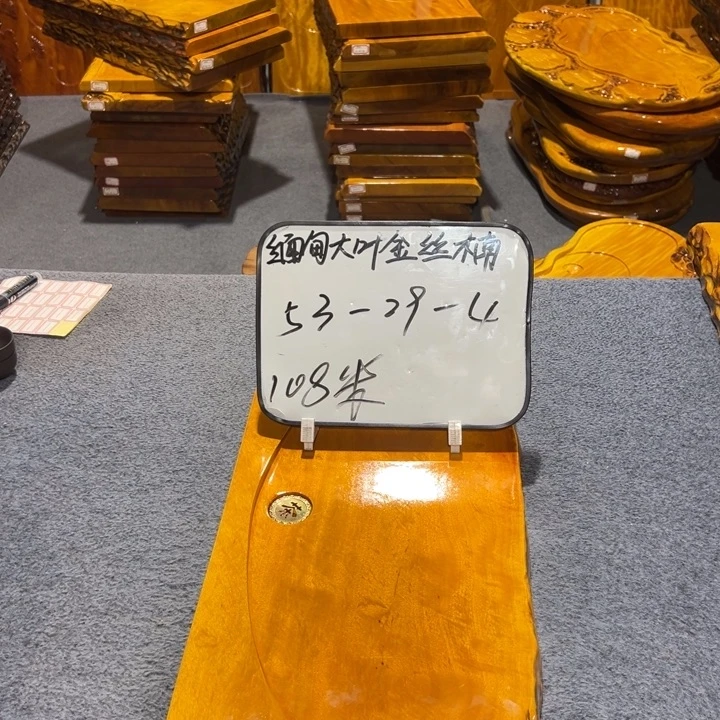 缅甸大叶金丝楠
53-29-4
108米